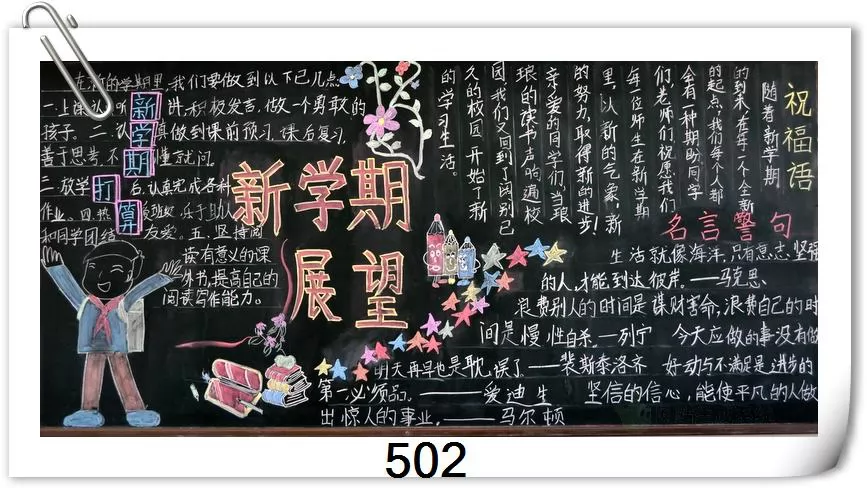 新学期打算
在新的学期里,我们要做到以下已几点
一.上课认 听 讲,积极发言,做一个勇敢的
孩子。二.认真做到课前预习,课后复习,
善于思考,不懂就问。
三.放学 后,认真完成各种
作业。四.热 班级 乐于助人
和同学团结友爱。五.坚持阅
读有意义的课
外书,提高自己的
阅读写作能力。
新学期
展望
祝福语
随着新学期
的到来,在每一个人全新
的起点,我们每个人都
会有一种期盼,同学
们,老师们祝愿我们
每一位师生在新学期
里,以新的气象,新
的努力,取得新的进步!
亲爱的同学们,当琅
琅的读书声响遍校
园,我们又回到了阔别已
久的校园,开始了新
的学习生活。
名言警句
生活就像海洋,只有意志坚强
的人,才能到达彼岸。——马克思
浪费别人的时间是谋财害命,浪费自己的时
间是慢性自杀。—列宁 今天应做的事没有做
明天再早也是耽误了——裴斯泰洛齐 好动与不满足是进步的
第一必须品。———爱迪生 坚信的信心,能使平凡的人做
出惊人的事业,——马尔顿
502